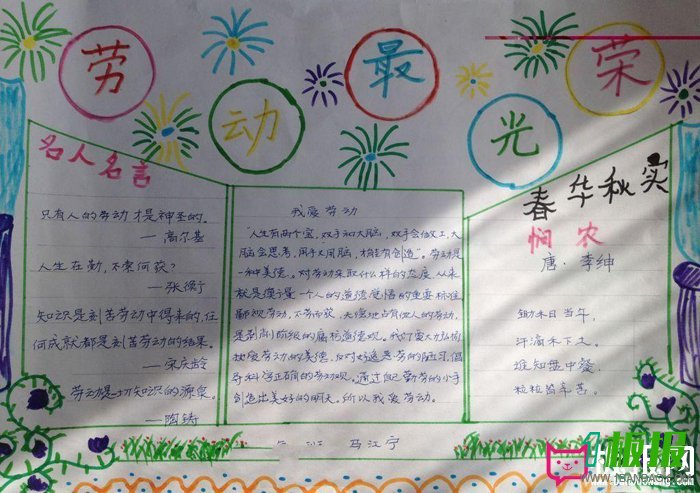 劳动最光荣
名人名言
只有人的劳动才是神圣的。
——高尔基
人生在勤，不索何获？
——张衡
知识是刻苦劳动中得来的，任
何成就都是刻苦劳动的结果。
——宋庆龄
劳动是一切知识的源泉。
——陶铸
我爱劳动
"人生有两个宝，双手和大脑，双手会做工，大
脑会思考，用手又用脑，才能有创造"。劳动是
一种美德。对劳动采取什么样的态度，从来
就是衡量一个人的道德觉悟的重要标准
鄙视劳动，不劳而获，
是剥削阶级的腐朽道德观。我们要大力弘扬
热爱劳动的美德，反对好逸恶劳的陋习，倡
导科学正确的劳动观。通过自己勤劳的小手
创造出美好的明天。所以我爱劳动。
春华秋实
悯农
唐·李绅
锄禾日当午，
汗滴禾下土。
谁知盘中餐，
粒粒皆辛苦。
班 马江宁
板报网